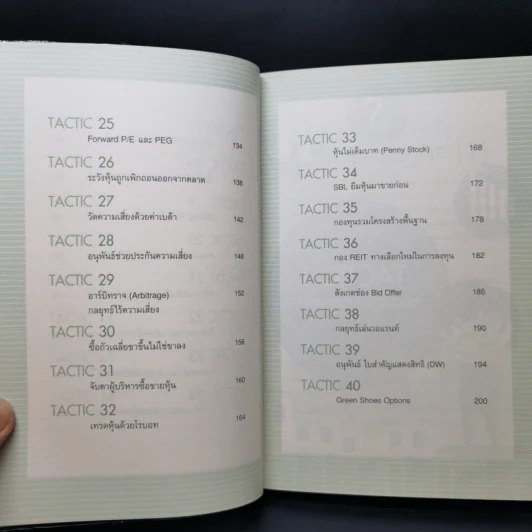 TACTIC 25
Forward P/E และ PEG 134
TACTIC 26
ระวังหุ้นถูกเพิกถอนออกจากตลาด 138
TACTIC 27
วัดความเสี่ยงด้วยค่าเบต้า 142
TACTIC 28
อนุพันธ์ช่วยประกันความเสี่ยง 146
TACTIC 29
อาร์บิทราจ (Arbitrage) 152
กลยุทธ์ไร้ความเสี่ยง
TACTIC 30
ซื้อถัวเฉลี่ยขาขึ้นไม่ใช่ขาลง 156
TACTIC 31
จับตาผู้บริหารซื้อขายหุ้น 160
TACTIC 32
เทรดหุ้นด้วยโรบอท 164
TACTIC 33
หุ้นไม่เต็มบาท (Penny Stock) 168
TACTIC 34
SBL ยืมหุ้นมาขายก่อน 172
TACTIC 35
กองทุนรวมโครงสร้างพื้นฐาน 178
TACTIC 36
กอง REIT ทางเลือกใหม่ในการลงทุน 182
TACTIC 37
สังเกตช่อง Bid Offer 186
TACTIC 38
กลยุทธ์เล่นวอแรนท์ 190
TACTIC 39
อนุพันธ์ ใบสำคัญแสดงสิทธิ (DW) 194
TACTIC 40
Green Shoes Options 200